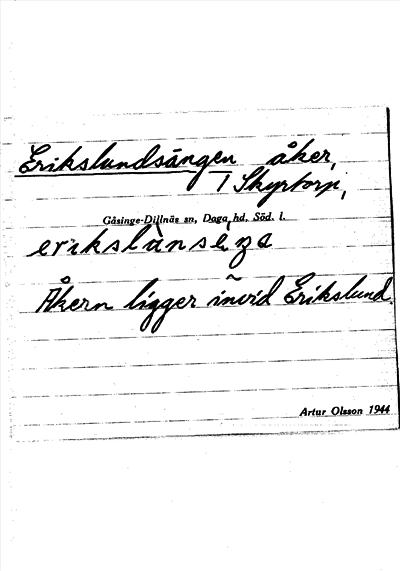 Erikslundsängen åker,
T Skyrtorp,
Gåsinge-Dillnäs sn, Daga hd, Söd. l.
Åkern ligger invid Erikslund.
Artur Olsson 1944